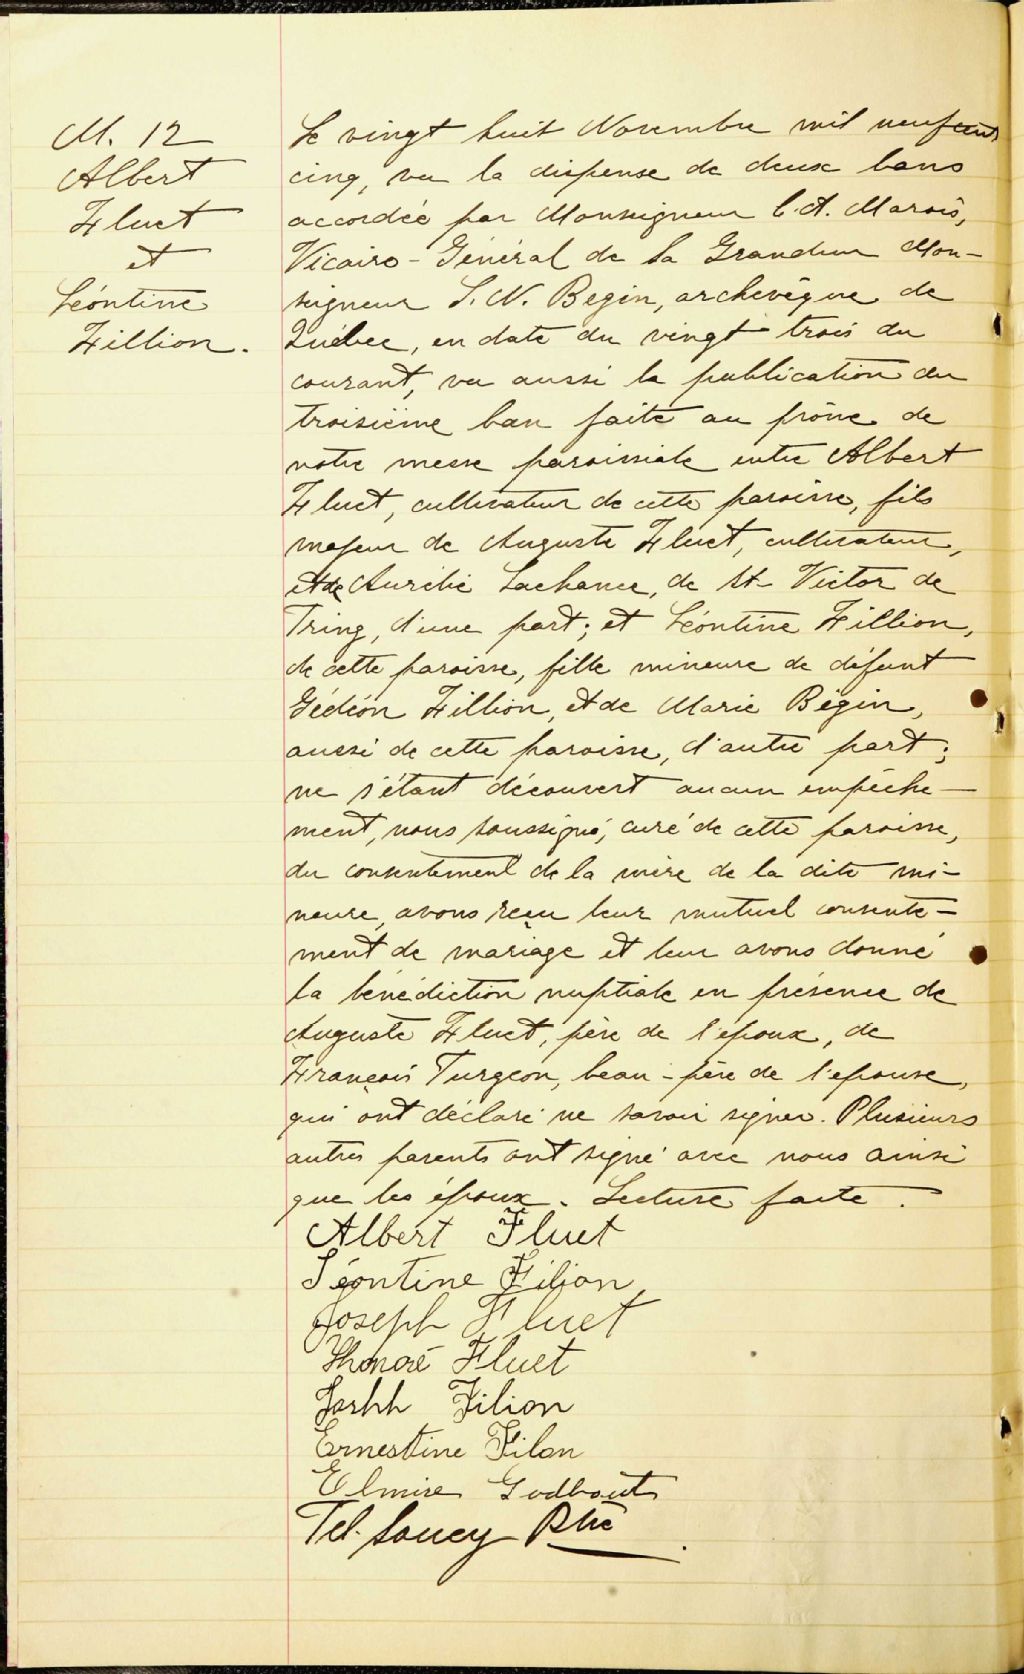 M. 12
Albert
Fluet
et
Léontine
Fillion.
Le vingt huit Novembre mil neuf cent
cinq, vu la dispense de deux bans
accordée par Monseigneur C. A. Marois,
Vicaire-Général de Sa Grandeur Mon-
seigneur L. N. Begin, archevêque de
Québec, en date du vingt trois du
courant, vu aussi la publication du
troisième ban faite au prône de
notre messe paroissiale entre Albert
Fluet, cultivateur de cette paroisse, fils
majeur de Auguste Fluet, cultivateur,
et de Aurélie Lachance, de St Victor de
Tring, d'une part; et Léontine Fillion,
de cette paroisse, fille mineure de défunt
Gédéon Fillion, et de Marie Bégin,
aussi de cette paroisse, d'autre part;
ne s'étant découvert aucun empêche-
ment, nous soussigné, curé de cette paroisse,
du consentement de la mère de la dite mi-
neure, avons reçu leur mutuel consente-
ment de mariage et leur avons donné
la bénédiction nuptiale en présence de
Auguste Fluet, père de l'époux, de
François Turgeon, beau-père de l'épouse,
qui ont déclaré ne savoir signer. Plusieurs
autres parents ont signé avec nous ainsi
que les époux. Lecture faite.
Albert Fluet
Léontine Filion
Joseph Fluet
Honoré Fluet
Joshh Filion
Ernestine Filon
Elmire Godbout
Tel. Soucy Ptre